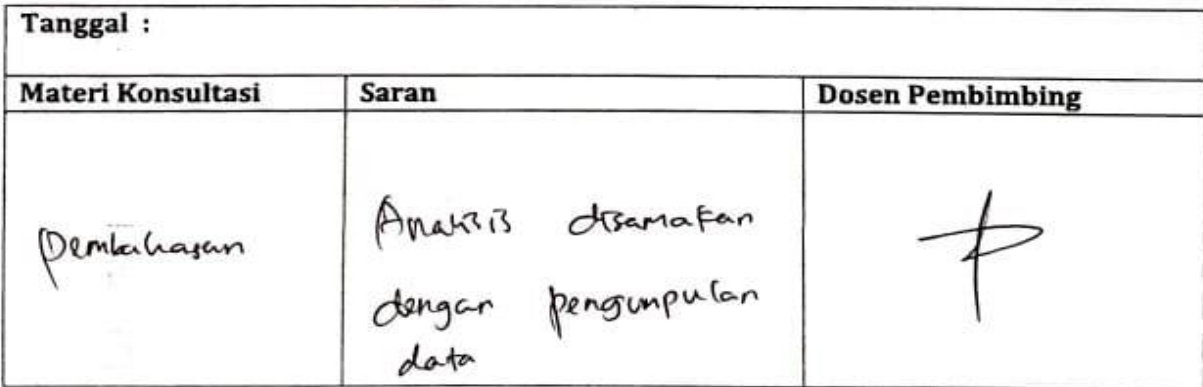 Tanggal :
Materi Konsultasi Saran Dosen Pembimbing
Pembahasan
Analisis disamakan
dengan pengumpulan
data